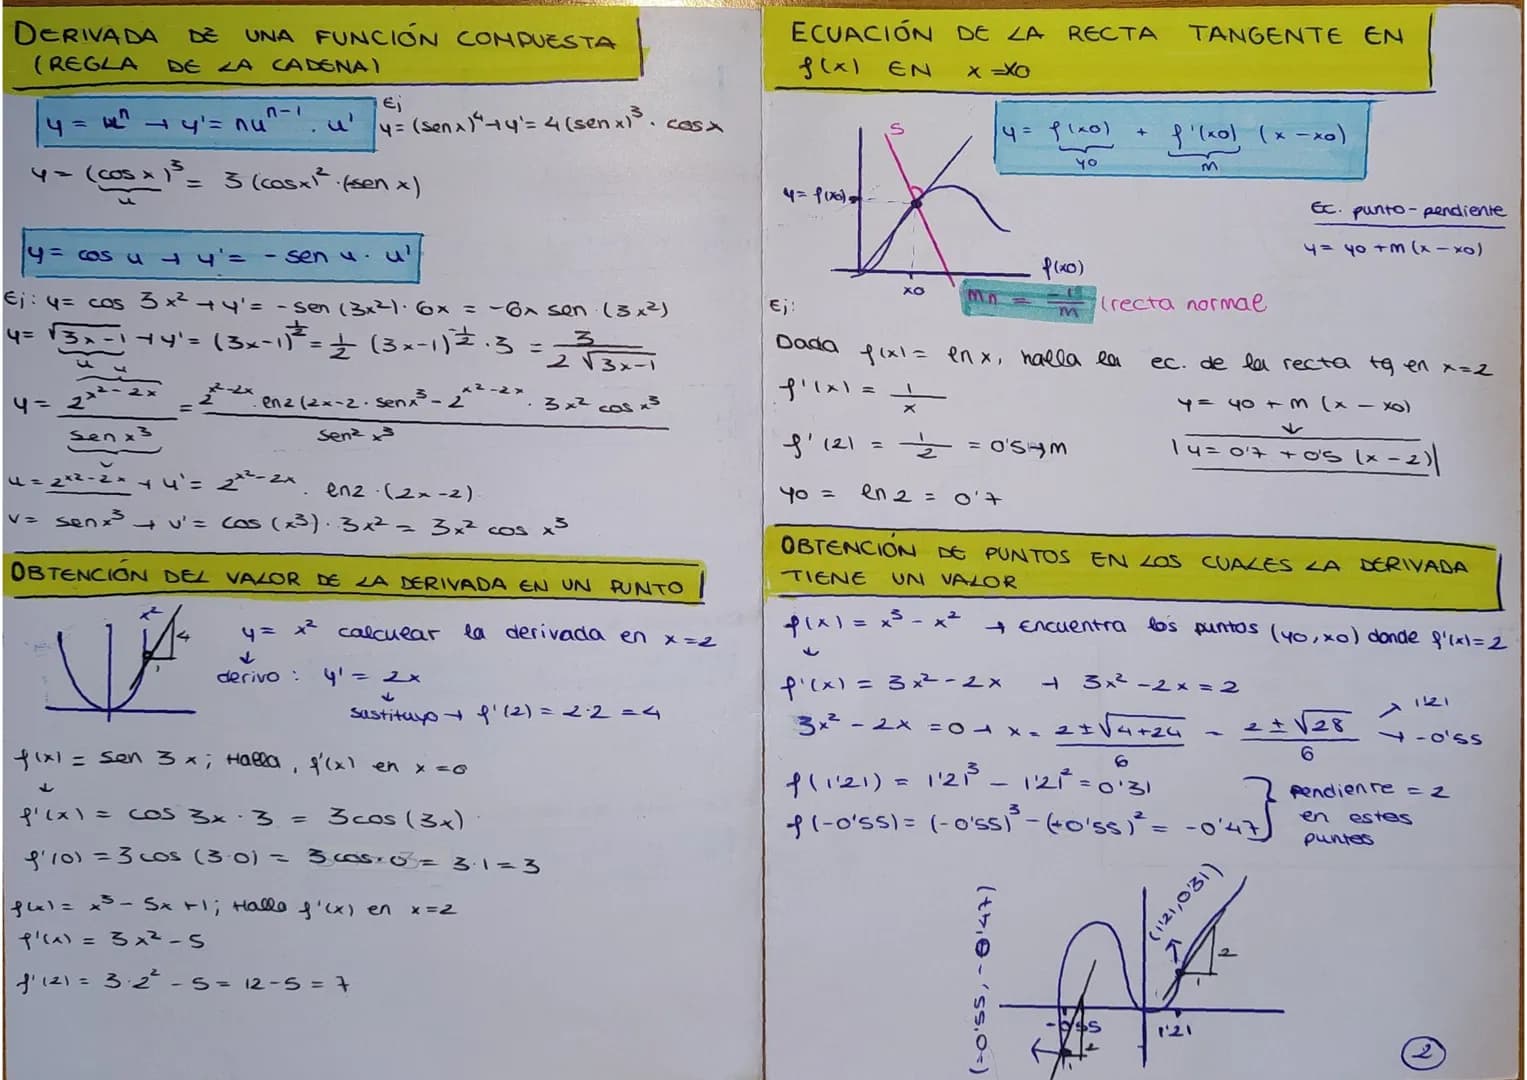 DERIVADA DE UNA FUNCIÓN COMPUESTA
(REGLA DE LA CADENA)
y = uⁿ → y' = nuⁿ⁻¹ . u'
Ej
y = (sen x)⁴ → y' = 4(sen x)³ . cos x
y = (cos x)³ = 3 (cos x)² . (-sen x)
u
y = cos u → y' = - sen u . u'
Ej: y = cos 3x² → y' = - sen (3x²) . 6x = -6x sen (3x²)
y = √3x-1 → y' = (3x-1)^½ = ½ (3x-1)^-½ . 3 = 3 / 2√3x-1
u
y = 2^x²-2x / sen x³ = 2^x²-2x . ln2 (2x-2 . sen x³ - 2^x²-2x . 3x² cos x³ / sen² x³
u = 2^x²-2x → u' = 2^x²-2x . ln2 . (2x-2)
v = sen x³ → v' = cos (x³) . 3x² = 3x² cos x³
OBTENCIÓN DEL VALOR DE LA DERIVADA EN UN PUNTO
x²
4
1
y = x² calcular la derivada en x=2
derivo : y' = 2x
sustituyo → f'(2) = 2·2 = 4
f(x) = sen 3x; Halla, f'(x) en x=0
f'(x) = cos 3x . 3 = 3cos(3x)
f'(0) = 3cos (3·0) = 3 cos·0 = 3·1 = 3
f(x) = x³ - 5x + 1; Halla f'(x) en x=2
f'(x) = 3x² - 5
f'(2) = 3·2² - 5 = 12-5 = 7
ECUACIÓN DE LA RECTA TANGENTE EN
f(x) EN x = x0
y = f(x0) + f'(x0) (x - x0)
y0 m
s
y = f(x0)
x0
f(x0)
Ec. punto-pendiente
y = y0 + m (x - x0)
mn = -1/m (recta normal
Ej:
Dada f(x) = ln x, halla la ec. de la recta tg en x=2
f'(x) = 1/x
y = y0 + m (x - x0)
f'(2) = 1/2 = 0'5 → m
y = 0'7 + 0'5 (x - 2)
y0 = ln 2 = 0'7
OBTENCIÓN DE PUNTOS EN LOS CUALES LA DERIVADA
TIENE UN VALOR
f(x) = x³ - x² → Encuentra los puntos (y0, x0) donde f'(x)=2
f'(x) = 3x² - 2x → 3x² - 2x = 2
3x² - 2x = 0 → x = 2 ± √4+24 / 6 = 2 ± √28 / 6 → 1'21
→ -0'55
f(1'21) = 1'21³ - 1'21² = 0'31
f(-0'55) = (-0'55)³ - (+0'55)² = -0'47
pendiente = 2
en estes
puntes
(-0'55, -0'47)
(1'21, 0'31)
2
1
-0'55
1'21
1
2
2